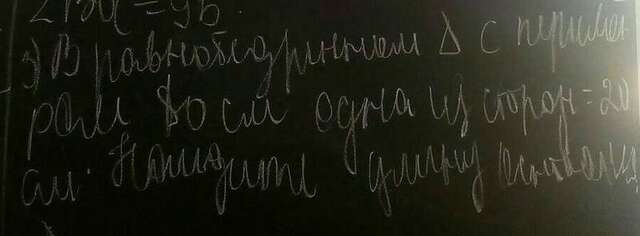 2) BC = 9Б.
3) В равнобедринном Δ с перимет
ром 80 см одна из сторон = 20
см. Найдите длину основания